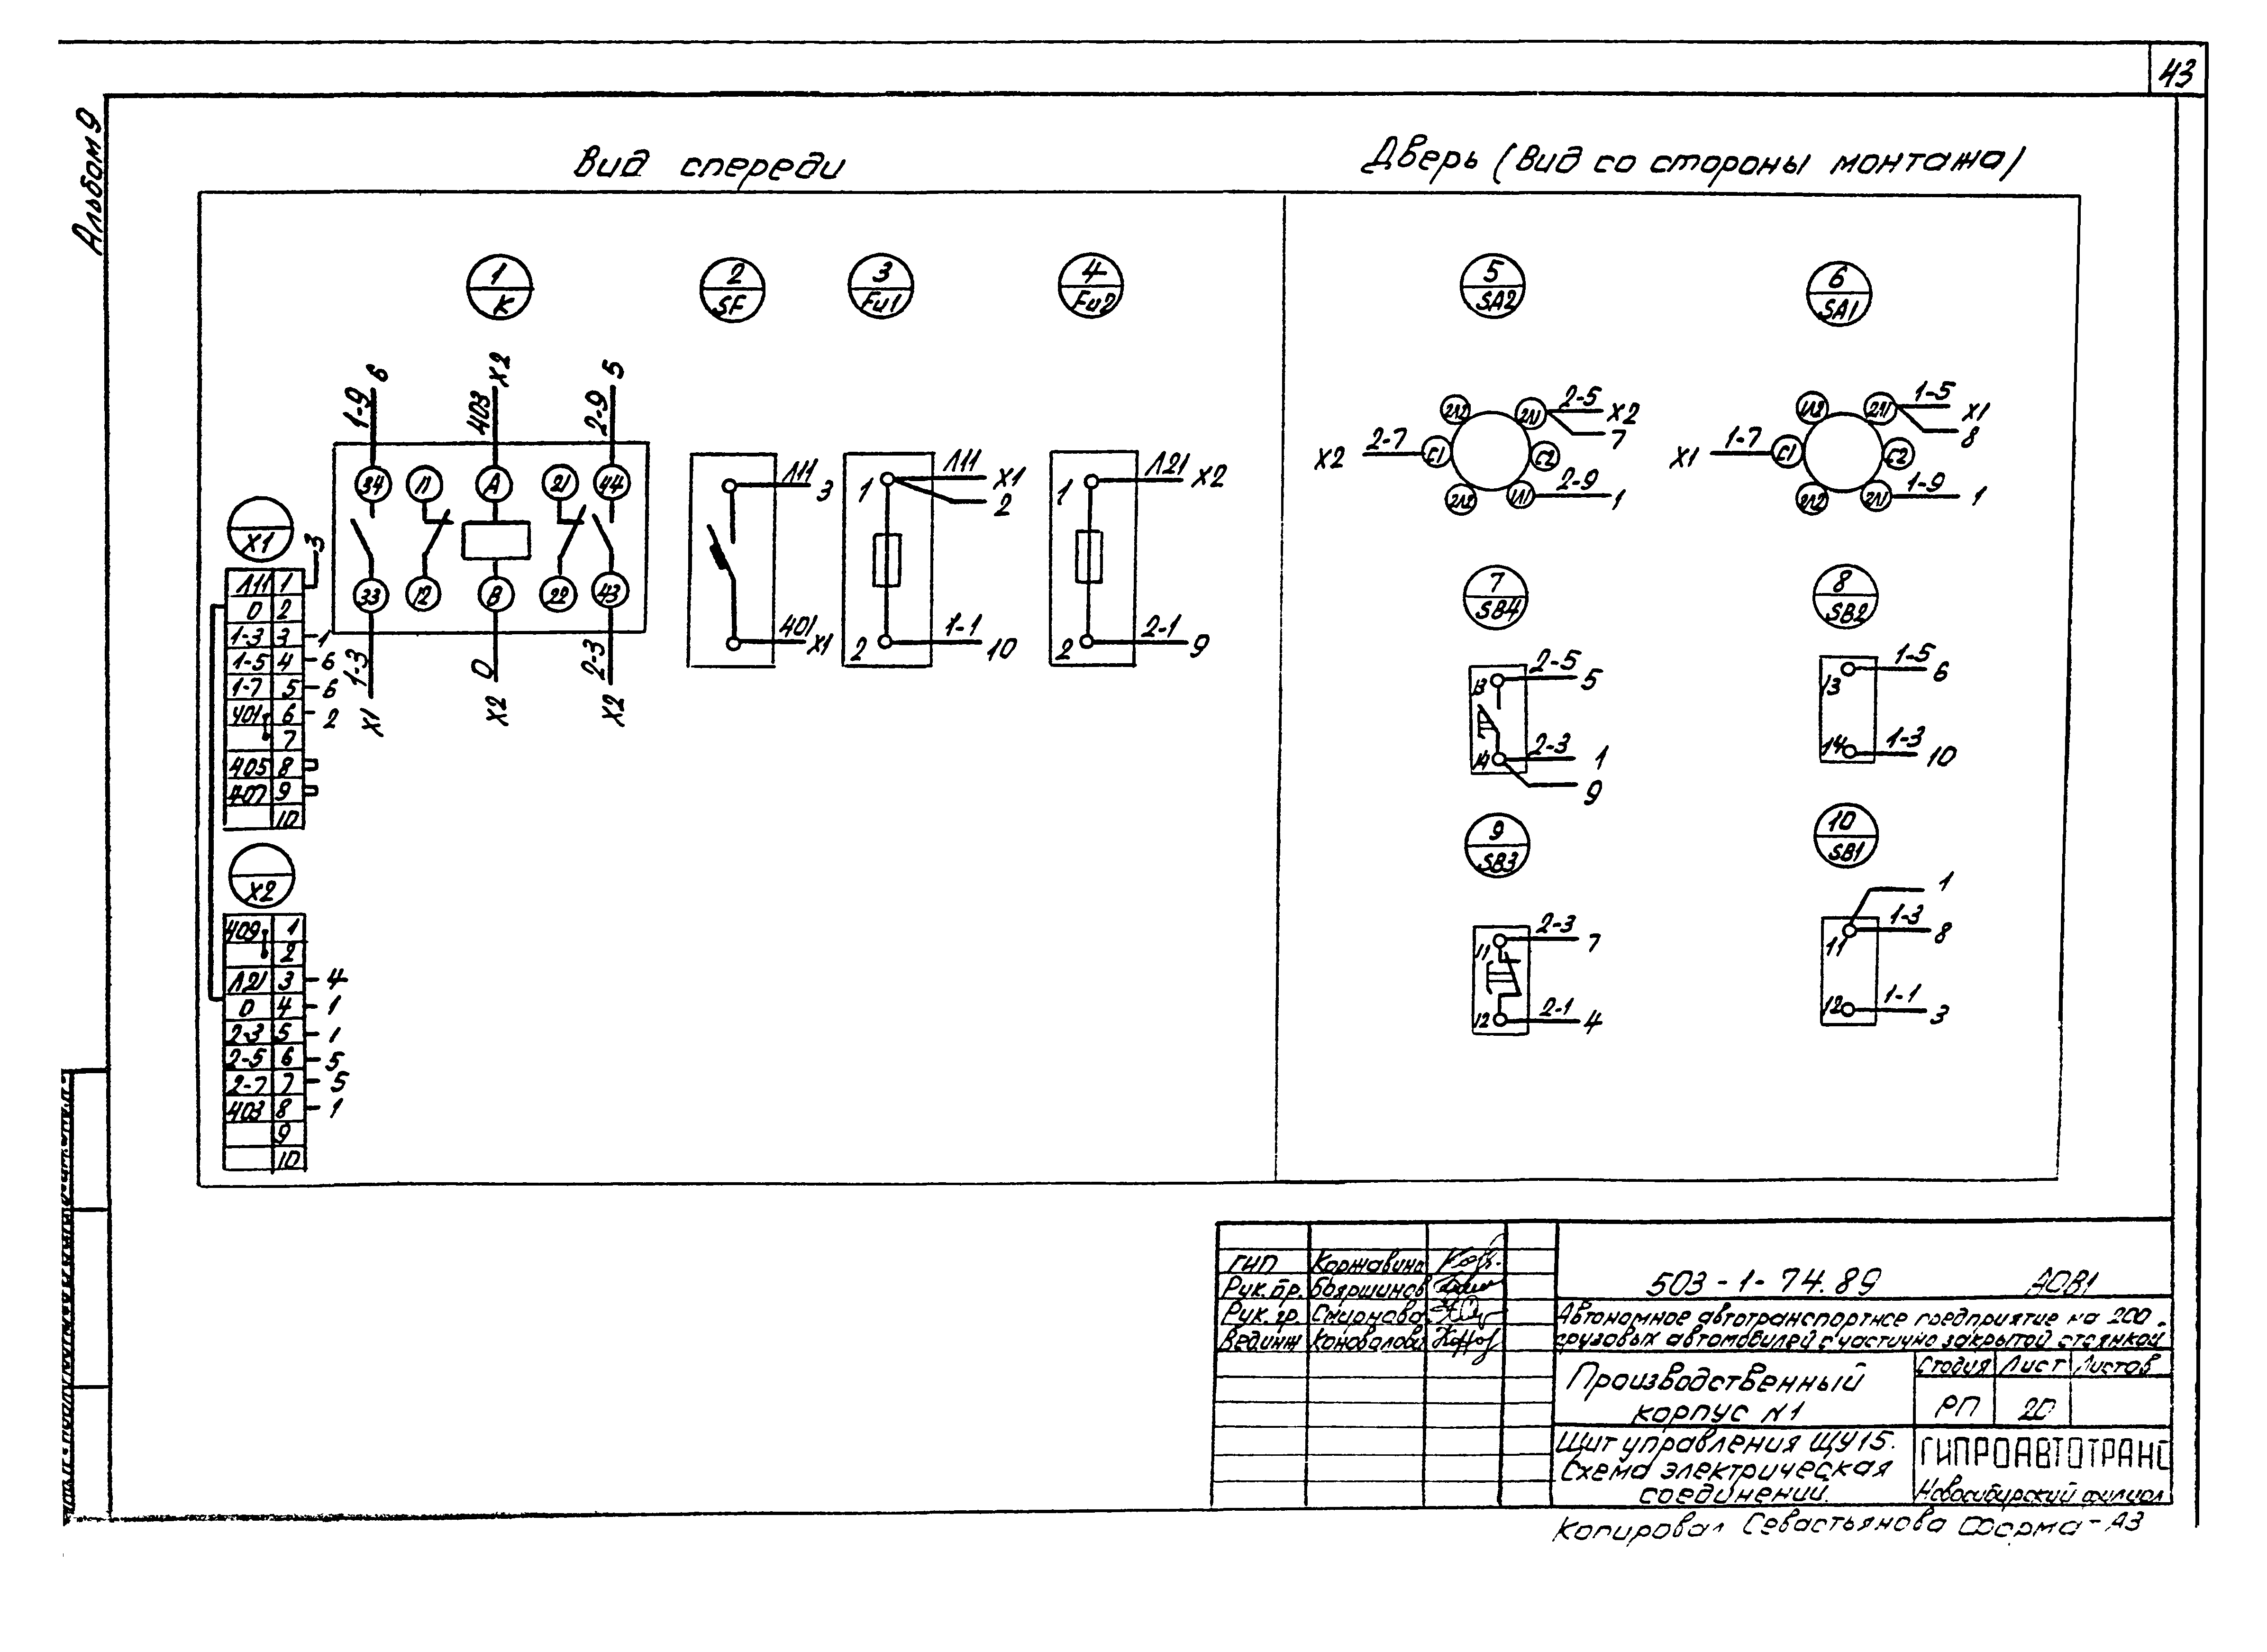 43
Альбом 9
Вид спереди
Дверь (Вид со стороны монтажа)
1 К
2 SF
3 Fu1
4 Fu2
5 SA2
6 SA1
1-9 6
403 X2
2-9 5
34 11 A 21 44
33 12 B 22 43
1-3 X1
0 X2
2-3 X2
Л11 3
401 X1
1 Л11 X1
2
2 1-1 10
1 Л21 X2
2 2-1 9
X1
3
Л11 1
0 2
1-3 3 1
1-5 4 6
1-7 5 6
401 6 2
7
405 8
407 9
10
X2
409 1
2
Л21 3 4
0 4 1
2-3 5 1
2-5 6 5
2-7 7 5
403 8 1
9
10
2Л2 2Л1 2-5 X2
7
X2 2-7 C1 C2
2Л2 1Л1 2-9 1
1Л2 2Л1 1-5 X1
8
X1 1-7 C1 C2
2Л2 2Л1 1-9 1
7 SB4
13 2-5 5
14 2-3 1
9
8 SB2
13 1-5 6
14 1-3 10
9 SB3
11 2-3 7
12 2-1 4
10 SB1
1
11 1-3 8
12 1-1 3
ГИП Коржавина
Рук. бр. Бояршинов
Рук. гр. Смирнова
Вед.инж Коновалова
503-1-74.89 АОВ1
Автономное автотранспортное предприятие на 200
грузовых автомобилей с частично закрытой стоянкой
Производственный
корпус N1
Стадия Лист Листов
РП 20
Щит управления ЩУ15.
Схема электрическая
соединений.
ГИПРОАВТОТРАНС
Новосибирский филиал
Копировал Севастьянова Форма-А3